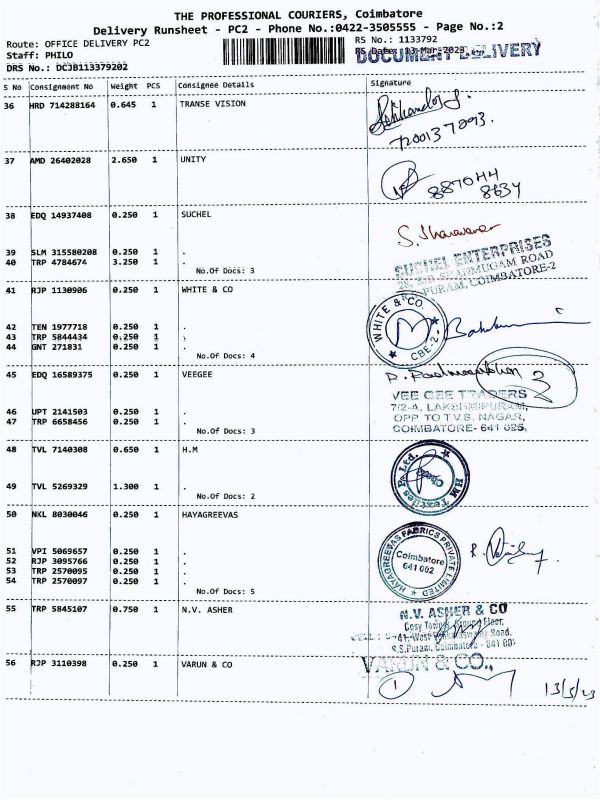 THE PROFESSIONAL COURIERS, Coimbatore
Delivery Runsheet - PC2 - Phone No.:0422-3505555 - Page No.:2
Route: OFFICE DELIVERY PC2
RS No.: 1133792
Staff: PHILO
RS Date: 13-Mar-2023
DOCUMENT DELIVERY
DRS No.: DCJB113379202
S No Consignment No Weight PCS Consignee Details Signature
36 HRD 714288164 0.645 1 TRANSE VISION
37 AMD 26402028 2.650 1 UNITY
887044
8634
38 EDQ 14937408 0.250 1 SUCHEL
39 SLM 315580208 0.250 1 .
40 TRP 4784674 3.250 1 .
No.Of Docs: 3
SUCHEL ENTERPRISES
SHANMUGAM ROAD
PURAM, COIMBATORE-2
41 RJP 1130906 0.250 1 WHITE & CO
WHITE & CO.
CBE-2
42 TEN 1977718 0.250 1 .
43 TRP 5844434 0.250 1 .
44 GNT 271831 0.250 1 .
No.Of Docs: 4
45 EDQ 16589375 0.250 1 VEEGEE
3
46 UPT 2141503 0.250 1 .
47 TRP 6658456 0.250 1 .
No.Of Docs: 3
VEE GEE TRADERS
7/2-A, LAKSHMIPURAM,
OPP TO T.V.S. NAGAR,
COIMBATORE- 641 025.
48 TVL 7140308 0.650 1 H.M
H.M Textiles P. Ltd.
49 TVL 5269329 1.300 1 .
No.Of Docs: 2
50 NKL 8030046 0.250 1 HAYAGREEVAS
HAYAGREEVAS FABRICS PRIVATE LIMITED
Coimbatore
641 002
51 VPI 5069657 0.250 1 .
52 RJP 3095766 0.250 1 .
53 TRP 2570095 0.250 1 .
54 TRP 2570097 0.250 1 .
No.Of Docs: 5
55 TRP 5845107 0.750 1 N.V. ASHER
N.V. ASHER & CO
Cosy Towers, Ground Floor,
R.S.Puram, Coimbatore - 641 002
56 RJP 3110398 0.250 1 VARUN & CO
VARUN & CO.,
1
13/3/23